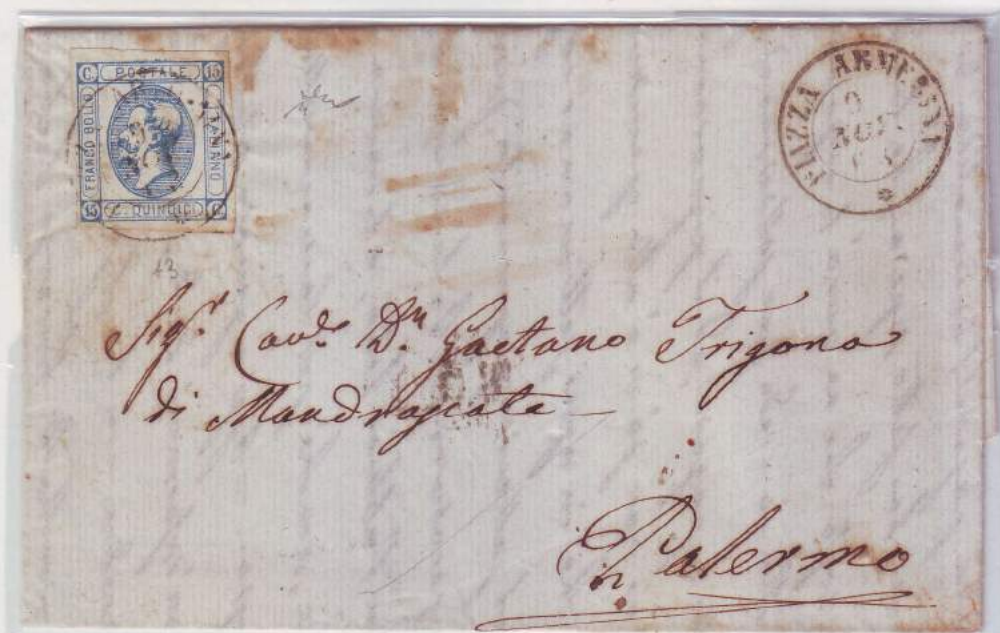 C. POSTALE 15
FRANCO BOLLO
ITALIANO
15 C. QUINDICI C.
PIAZZA ARMERINA
13
Sigr. Cave. Dn. Gaetano Trigona
di Mandrascata
Palermo